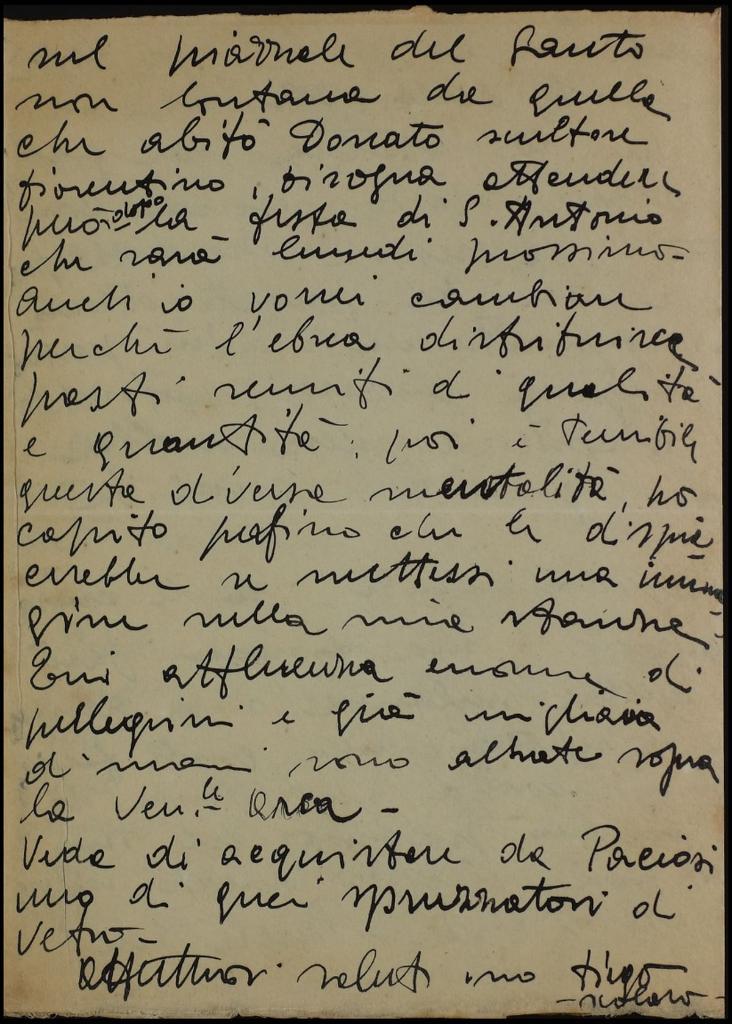 sul piazzale del Santo
non lontana da quella
che abitò Donato scultore
fiorentino, bisogna attendere
però dopo la festa di S. Antonio
che sarà lunedì prossimo -
anch'io vorrei cambiare
perchè l'ebrea distribuisce
pasti scarsi di qualità
e quantità; poi è terribile
questa diversa mentalità, ho
capito perfino che le dispia
cerebbe se mettessi una imma-
gine nella mia stanza
affluenza enorme di
pellegrini e già migliaia
di mani sono alzate sopra
la Ven.le Arca -
Veda di acquistare da Paciosi
uno di quei spruzzatori di
vetro -
Affettuosi saluti suo
scolaro -